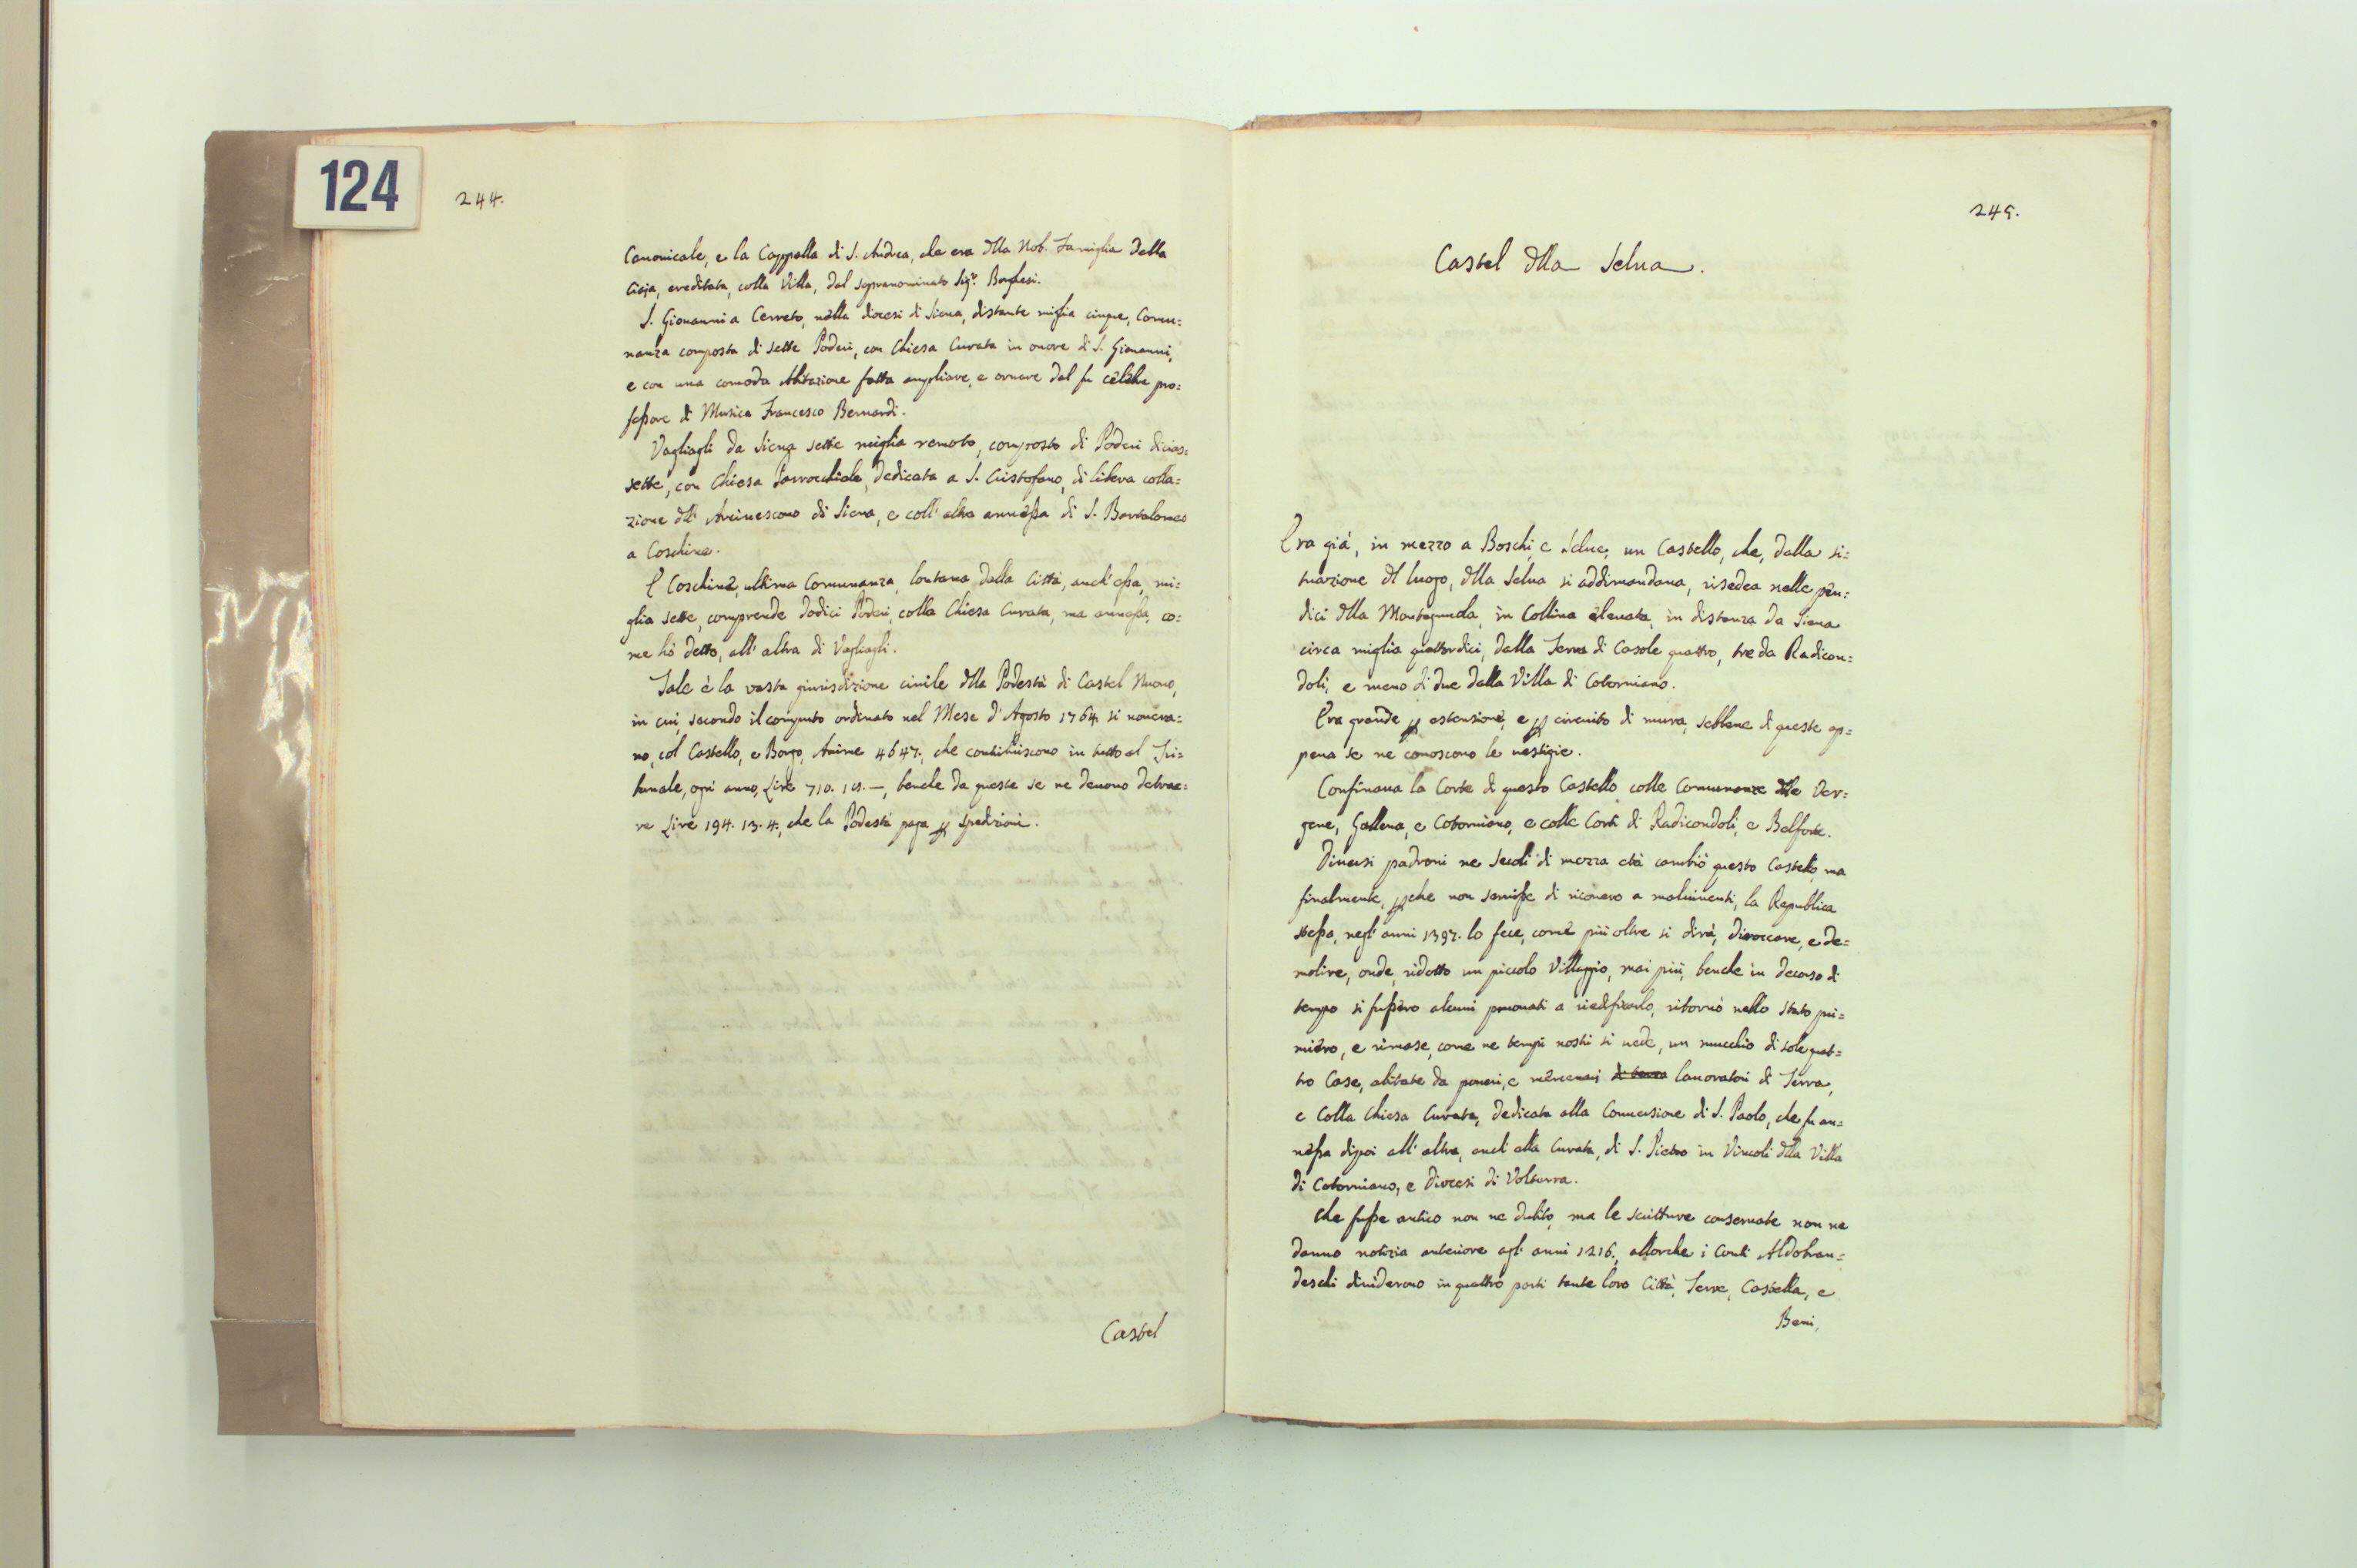 124
244.
Canonicale, e la Cappella di S. Andrea, che era dlla Nob. Famiglia Della
Ciaja, ereditata, colla Villa, dal sopranominato Sig.r Borghesi.
S. Giovanni a Cerreto, nella diocesi di Siena, distante miglia cinque, Comu=
nanza composta di sette Poderi, con Chiesa Curata in onore di S. Giovanni,
e con una comoda Abitazione fatta ampliare, e ornare dal fu celebre pro=
fessore di Musica Francesco Bernardi.
Vagliagli da Siena sette miglia remoto, composto di Poderi dicias=
sette, con Chiesa Parrochiale, dedicata a S. Cristofano, di libera colla=
zione dll' Arcivescovo di Siena, e coll' altra annessa di S. Bartolomeo
a Coschine.
E Coschine, ultima Comunanza, lontana dalla Città, anch' essa, mi=
glia sette, comprende dodici Poderi, colla Chiesa Curata, ma annessa, co=
me hò detto, all' altra di Vagliagli.
Tale è la vasta giurisdizione civile dlla Podestà di Castel Nuovo,
in cui, secondo il computo ordinato nel Mese d' Agosto 1764. si novera=
no, col Castello, e Borgo, Anime 4647., che contribuiscono in tutto al Tri=
bunale, ogni anno, Lire 710. 15. —, benche da queste se ne devono detrae=
re Lire 194. 13. 4., che la Podestà paga p spedizioni.
Castel
245.
Castel dlla Selva.
Era già, in mezzo a Boschi, e Selve, un Castello, che, dalla si=
tuazione dl luogo, dlla Selva si addimandava, risedea nelle pen=
dici dlla Montagnuola, in Collina elevata, in distanza da Siena
circa miglia quattordici, dalla Terra di Casole quattro, tre da Radicon=
doli, e meno di due dalla Villa di Cotorniano.
Era grande p estensione, e p circuito di mura, sebbene di queste ap=
pena se ne conoscono le vestigie.
Confinava la Corte di questo Castello colle Comunanze dlle Ver=
gene, Gallena, e Cotorniano, e colle Corti di Radicondoli, e Belforte.
Diversi padroni ne Secoli di mezza età cambiò questo Castello, ma
finalmente, pche non servisse di ricovero a malviventi, la Republica
stessa, negl' anni 1397. lo fece, come più oltre si dirà, diroccare, e de=
molire, onde, ridotto un piccolo Villaggio, mai più, benche in decorso di
tempo si fussero alcuni provati a riedificarlo, ritornò nello stato pri=
miero, e rimase, come ne tempi nostri si vede, un mucchio di sole quat=
tro Case, abitate da poveri, e mercenarj di terra lavoratori di Terra,
e colla Chiesa Curata, dedicata alla Conversione di S. Paolo, che fu an=
nessa dipoi all' altra, anch' ella Curata, di S. Pietro in Vincoli dlla Villa
di Cotorniano, e Diocesi di Volterra.
Che fusse antico non ne dubito, ma le scritture conservate non ne
danno notizia anteriore agl' anni 1216., allorche i Conti Aldobran=
deschi dividerono in quattro parti tante loro Città, Terre, Castella, e
Beni,